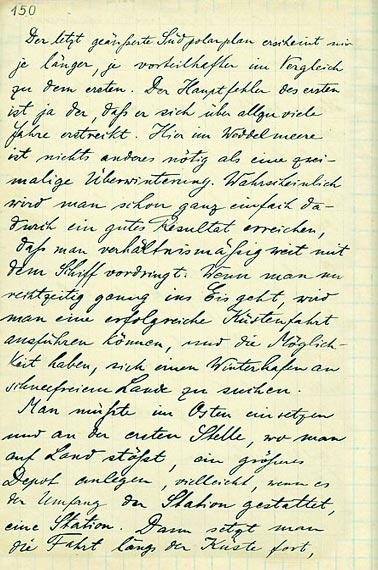 150
Der letzt geäußerte Südpolarplan erscheint mir
je länger, je vorteilhafter im Vergleich
zu dem ersten. Der Hauptfehler des ersten
ist ja der, daß er sich über allzu viele
Jahre erstreckt. Hier im Weddelmeere
ist nichts anderes nötig als eine zwei-
malige Überwinterung. Wahrscheinlich
wird man schon ganz einfach da-
durch ein gutes Resultat erreichen,
daß man verhältnismäßig weit mit
dem Schiff vordringt. Wenn man nur
rechtzeitig genug ins Eis geht, wird
man eine erfolgreiche Küstenfahrt
ausführen können, und die Möglich-
keit haben, sich einen Winterhafen an
schneefreiem Lande zu suchen.
Man müßte im Osten einsetzen
und an der ersten Stelle, wo man
auf Land stößt, ein größeres
Depot anlegen, vielleicht, wenn es
der Umfang der Station gestattet,
eine Station. Dann setzt man
die Fahrt längs der Küste fort,